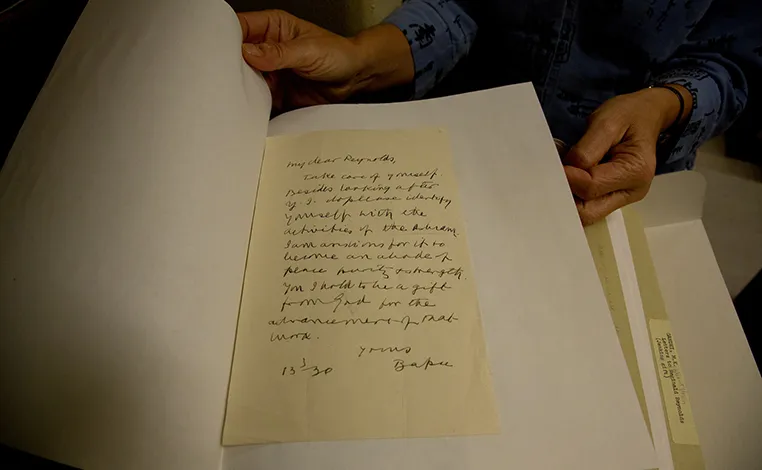 My dear Reynolds,
Take care of yourself.
Besides looking after
Y. I. do please identify
yourself with the
activities of the Ashram.
I am anxious for it to
become an abode of
peace purity & strength.
You I hold to be a gift
from God for the
advancement of that
work.
Yours
Bapu
13/3/30
GANDHI, M.K.
Letters to Reginald Reynolds